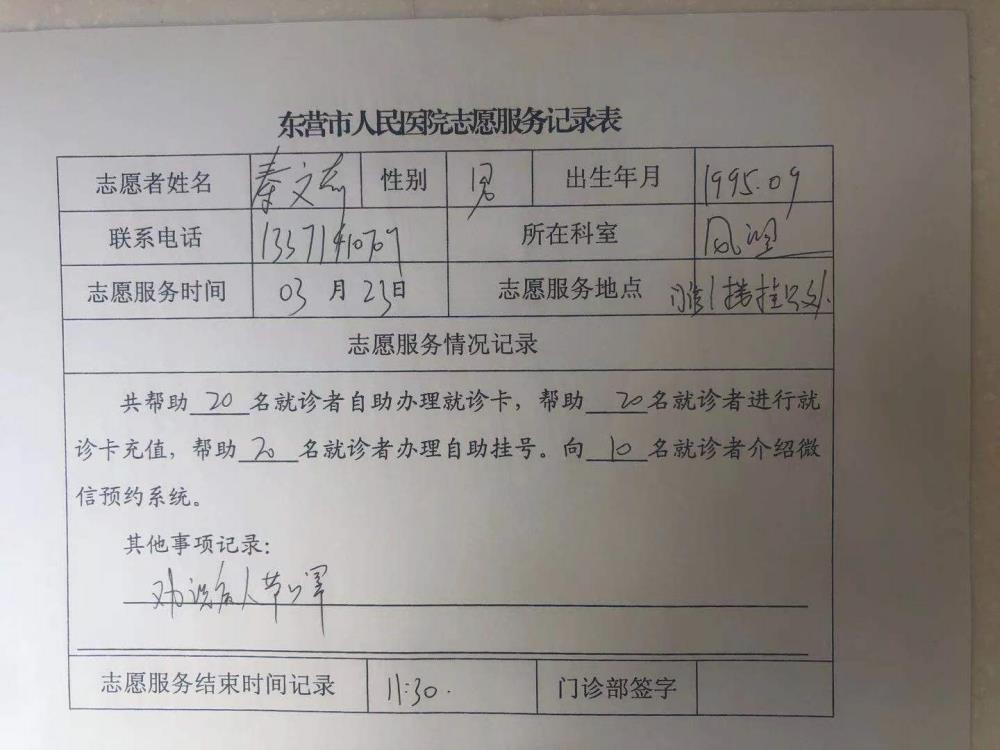 东营市人民医院志愿服务记录表
志愿者姓名 秦文志 性别 男 出生年月 1995.09
联系电话 13371410707 所在科室 风湿
志愿服务时间 03月23日 志愿服务地点 挂号处
志愿服务情况记录
共帮助 20 名就诊者自助办理就诊卡，帮助 20 名就诊者进行就
诊卡充值，帮助 20 名就诊者办理自助挂号。向 10 名就诊者介绍微
信预约系统。
其他事项记录：
劝说病人带口罩
志愿服务结束时间记录 11:30. 门诊部签字